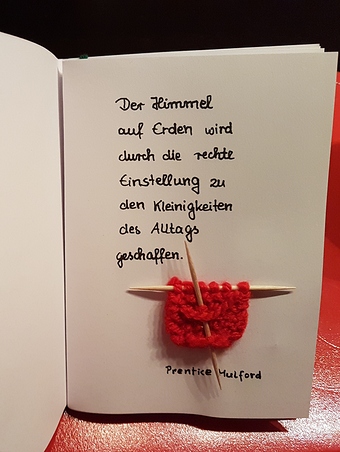 Der Himmel
auf Erden wird
durch die rechte
Einstellung zu
den Kleinigkeiten
des Alltags
geschaffen.
Prentice Mulford